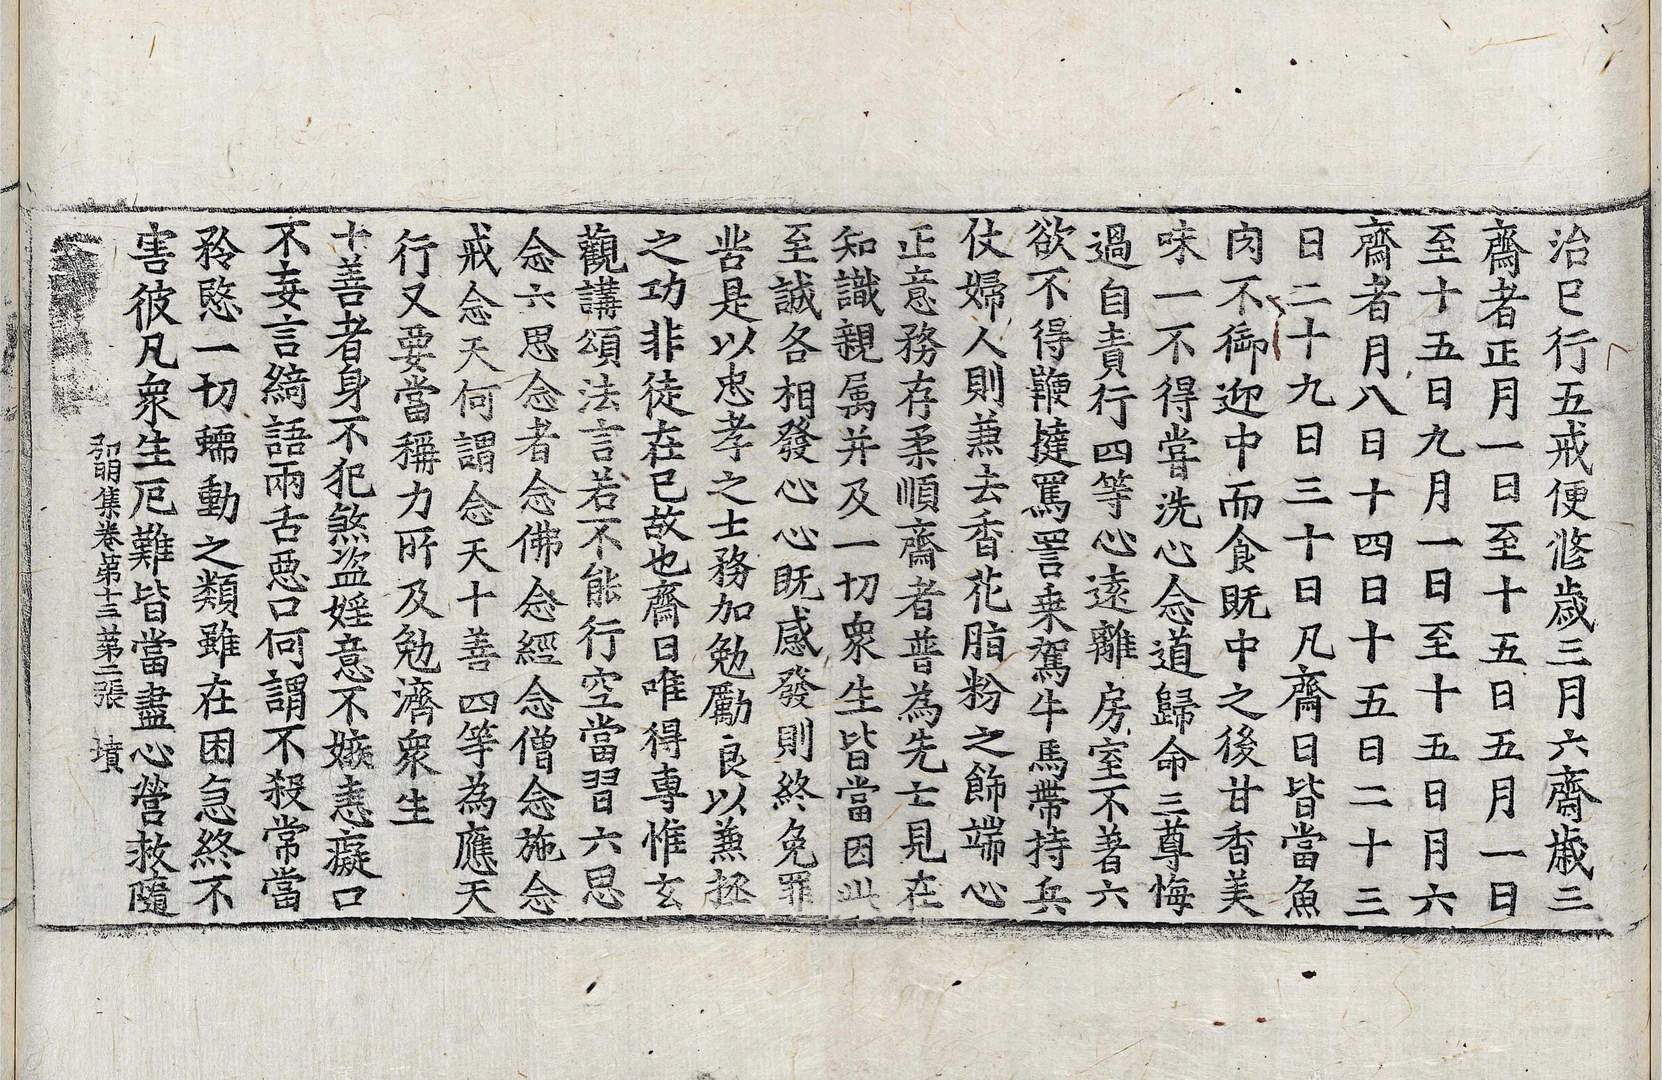 治已行五戒便修歲三月六齋歲三
齋者正月一日至十五日五月一日
至十五日九月一日至十五日月六
齋者月八日十四日十五日二十三
日二十九日三十日凡齋日皆當魚
肉不御迎中而食既中之後甘香美
味一不得嘗洗心念道歸命三尊悔
過自責行四等心遠離房室不著六
欲不得鞭撻罵詈乗駕牛馬帶持兵
仗婦人則兼去香花脂粉之飾端心
正意務存柔順齋者普為先亡見在
知識親属并及一切衆生皆當因此
至誠各相發心心既感發則終免罪
苦是以忠孝之士務加勉勵良以兼拯
之功非徒在已故也齋日唯得專惟玄
觀講頌法言若不能行空當習六思
念六思念者念佛念經念僧念施念
戒念天何謂念天十善四等為應天
行又要當稱力所及勉濟衆生
十善者身不犯煞盗婬意不嫉恚癡口
不妄言綺語兩舌惡口何謂不殺常當
矜愍一切蠕動之類雖在困急終不
害彼凡衆生厄難皆當盡心營救隨
弘明集卷第十三 第二張 墳